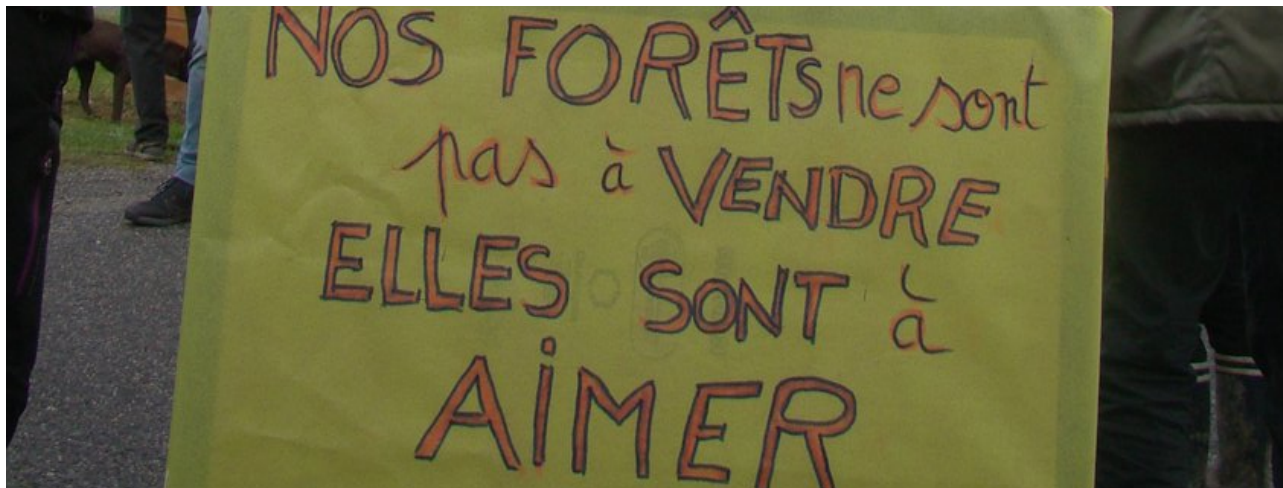 NOS FORÊTS ne sont
pas à VENDRE
ELLES SONT à
AiMER